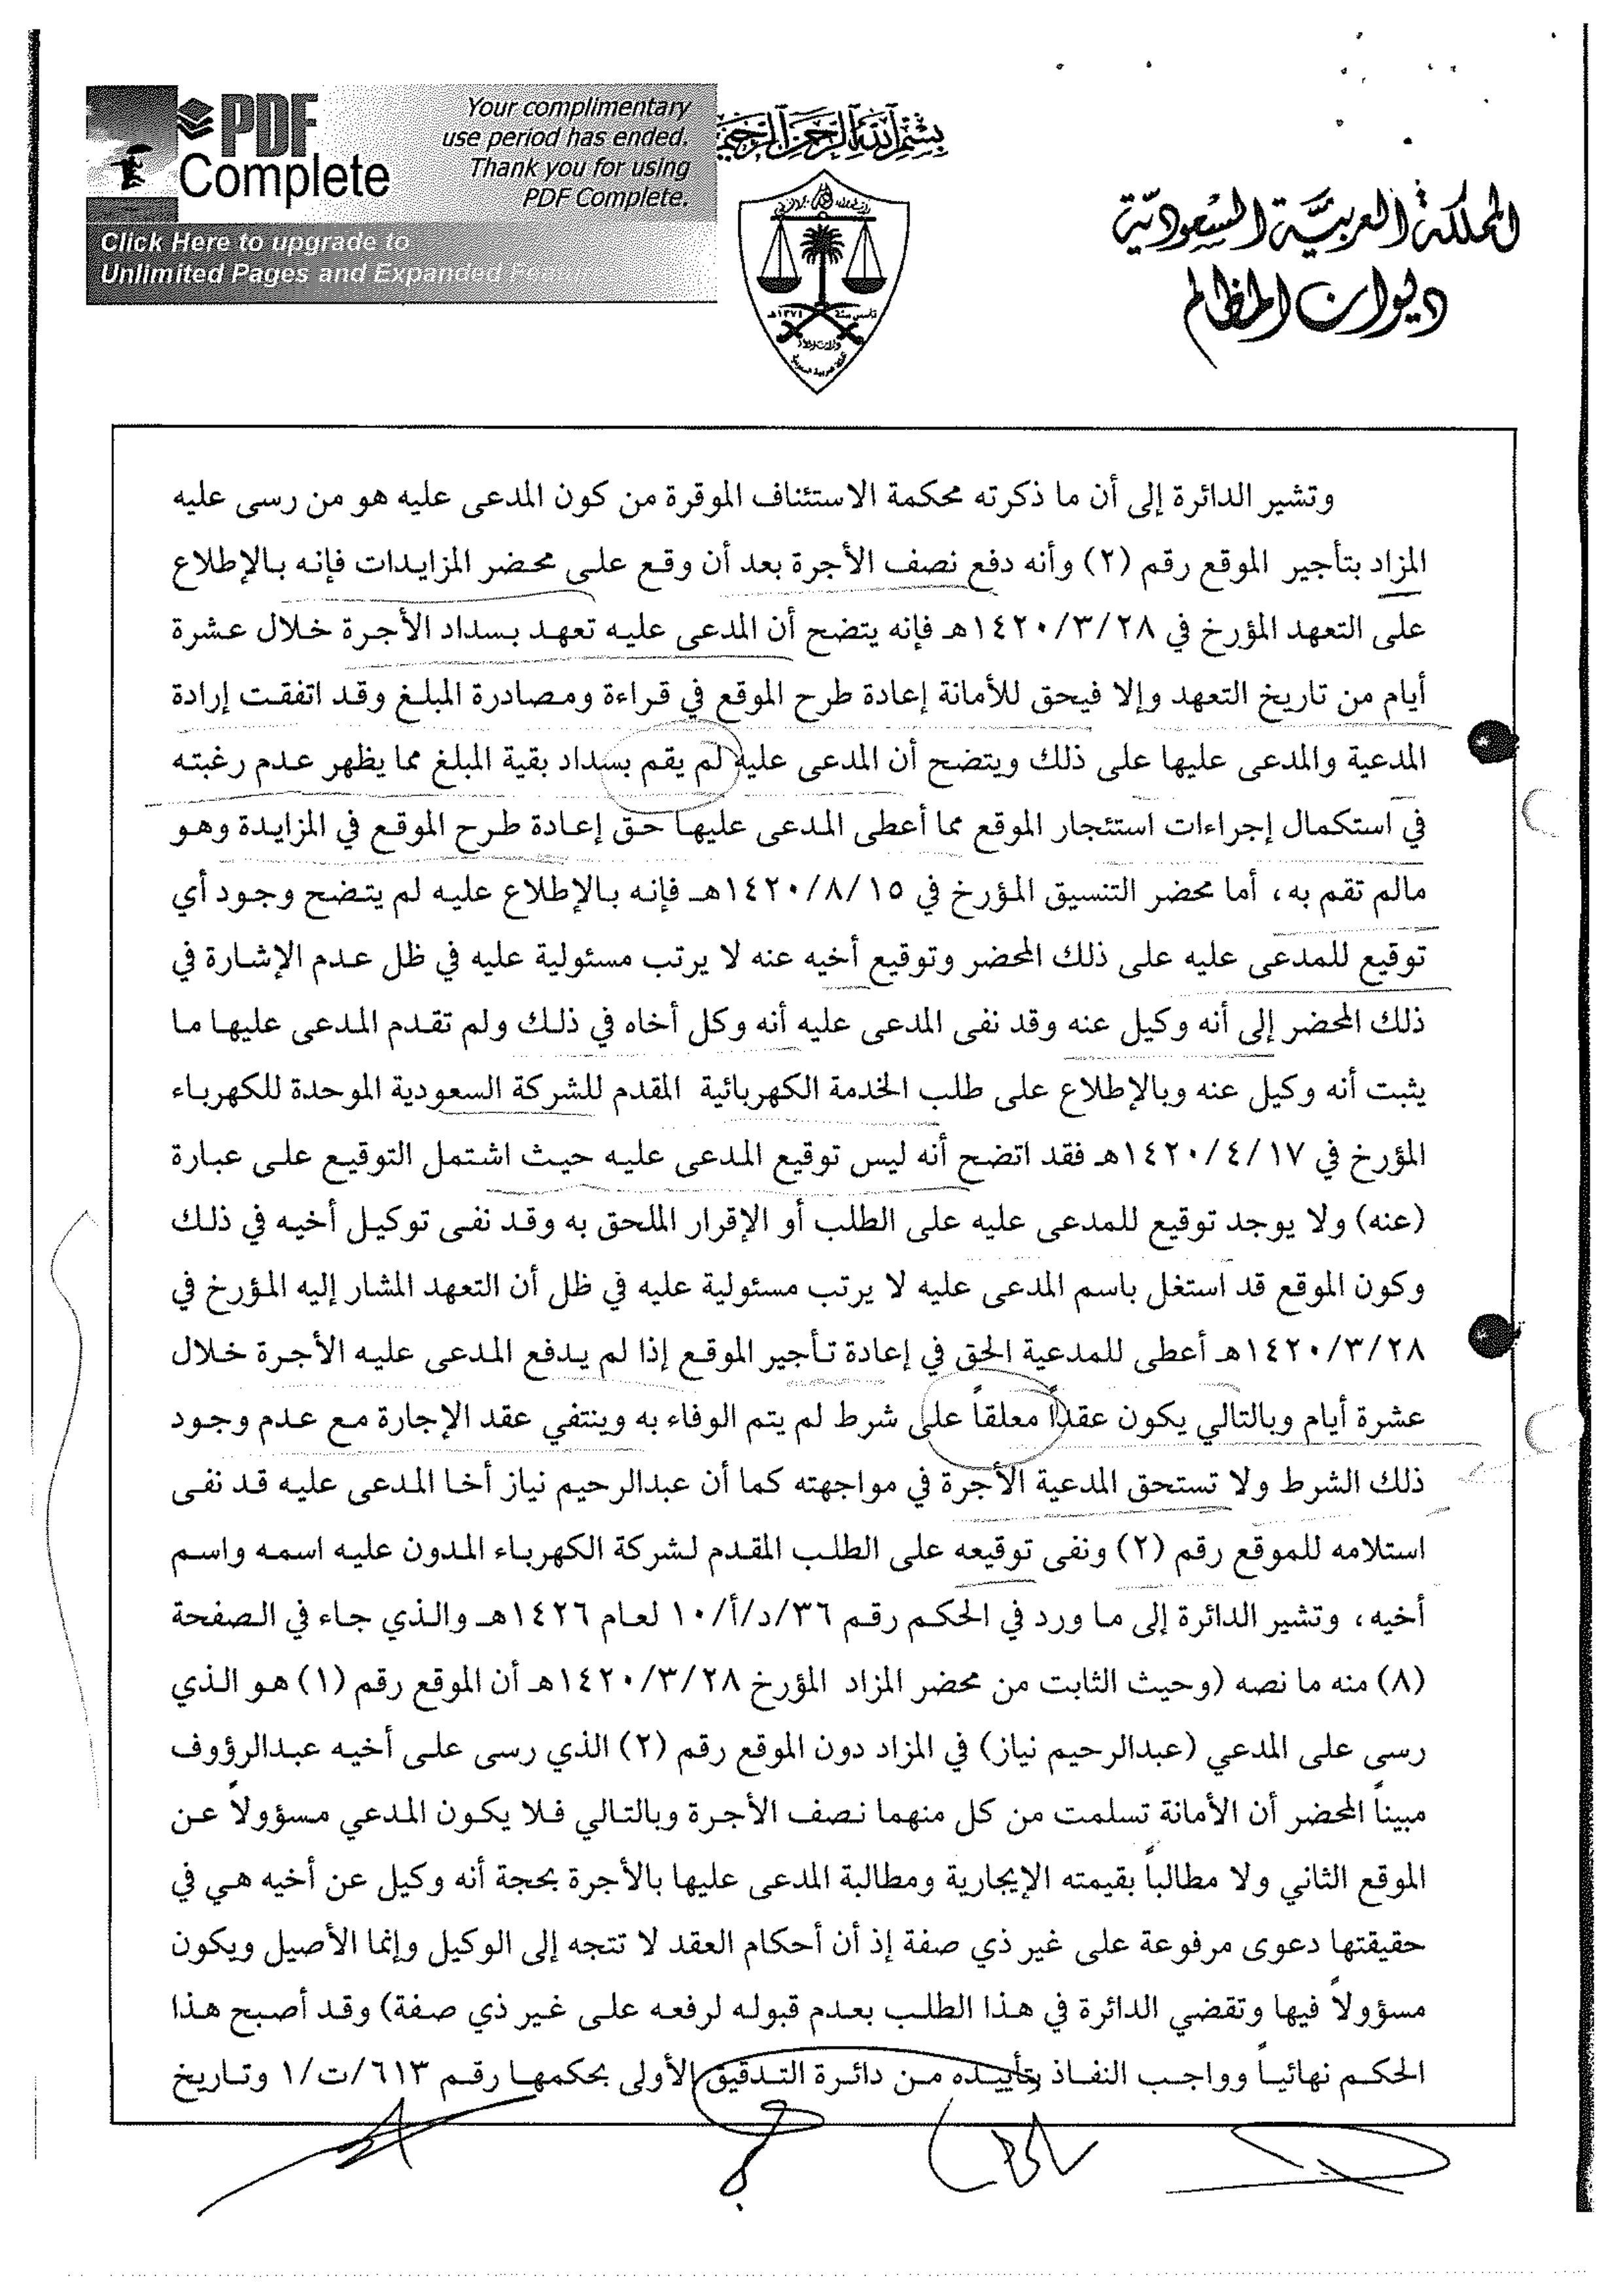 PDF Complete
Your complimentary
use period has ended.
Thank you for using
PDF Complete.
Click Here to upgrade to
Unlimited Pages and Expanded Features
بسم الله الرحمن الرحيم
المملكة العربية السعودية
ديوان المظالم
وتشير الدائرة إلى أن ما ذكرته محكمة الاستئناف الموقرة من كون المدعى عليه هو من رسى عليه
المزاد بتأجير الموقع رقم (٢) وأنه دفع نصف الأجرة بعد أن وقع على محضر المزايدات فإنه بالإطلاع
على التعهد المؤرخ في ١٤٢٠/٣/٢٨هـ فإنه يتضح أن المدعى عليه تعهد بسداد الأجرة خلال عشرة
أيام من تاريخ التعهد وإلا فيحق للأمانة إعادة طرح الموقع في قراءة ومصادرة المبلغ وقد اتفقت إرادة
المدعية والمدعى عليها على ذلك ويتضح أن المدعى عليه لم يقم بسداد بقية المبلغ مما يظهر عدم رغبته
في استكمال إجراءات استئجار الموقع مما أعطى المدعى عليها حق إعادة طرح الموقع في المزايدة وهو
مالم تقم به، أما محضر التنسيق المؤرخ في ١٤٢٠/٨/١٥هـ فإنه بالإطلاع عليه لم يتضح وجود أي
توقيع للمدعى عليه على ذلك المحضر وتوقيع أخيه عنه لا يرتب مسئولية عليه في ظل عدم الإشارة في
ذلك المحضر إلى أنه وكيل عنه وقد نفى المدعى عليه أنه وكل أخاه في ذلك ولم تقدم المدعى عليها ما
يثبت أنه وكيل عنه وبالإطلاع على طلب الخدمة الكهربائية المقدم للشركة السعودية الموحدة للكهرباء
المؤرخ في ١٤٢٠/٤/١٧هـ فقد اتضح أنه ليس توقيع المدعى عليه حيث اشتمل التوقيع على عبارة
(عنه) ولا يوجد توقيع للمدعى عليه على الطلب أو الإقرار الملحق به وقد نفى توكيل أخيه في ذلك
وكون الموقع قد استغل باسم المدعى عليه لا يرتب مسئولية عليه في ظل أن التعهد المشار إليه المؤرخ في
١٤٢٠/٣/٢٨هـ أعطى للمدعية الحق في إعادة تأجير الموقع إذا لم يدفع المدعى عليه الأجرة خلال
عشرة أيام وبالتالي يكون عقداً معلقاً على شرط لم يتم الوفاء به وينتفي عقد الإجارة مع عدم وجود
ذلك الشرط ولا تستحق المدعية الأجرة في مواجهته كما أن عبدالرحيم نياز أخا المدعى عليه قد نفى
استلامه للموقع رقم (٢) ونفى توقيعه على الطلب المقدم لشركة الكهرباء المدون عليه اسمه واسم
أخيه، وتشير الدائرة إلى ما ورد في الحكم رقم ٣٦/د/أ/١٠ لعام ١٤٢٦هـ والذي جاء في الصفحة
(٨) منه ما نصه (وحيث الثابت من محضر المزاد المؤرخ ١٤٢٠/٣/٢٨هـ أن الموقع رقم (١) هو الذي
رسى على المدعي (عبدالرحيم نياز) في المزاد دون الموقع رقم (٢) الذي رسى على أخيه عبدالرؤوف
مبيناً المحضر أن الأمانة تسلمت من كل منهما نصف الأجرة وبالتالي فلا يكون المدعي مسؤولاً عن
الموقع الثاني ولا مطالباً بقيمته الإيجارية ومطالبة المدعى عليها بالأجرة بحجة أنه وكيل عن أخيه هي في
حقيقتها دعوى مرفوعة على غير ذي صفة إذ أن أحكام العقد لا تتجه إلى الوكيل وإنما الأصيل ويكون
مسؤولاً فيها وتقضي الدائرة في هذا الطلب بعدم قبوله لرفعه على غير ذي صفة) وقد أصبح هذا
الحكم نهائياً وواجب النفاذ بتأييده من دائرة التدقيق الأولى بحكمها رقم ٦١٣/ت/١ وتاريخ